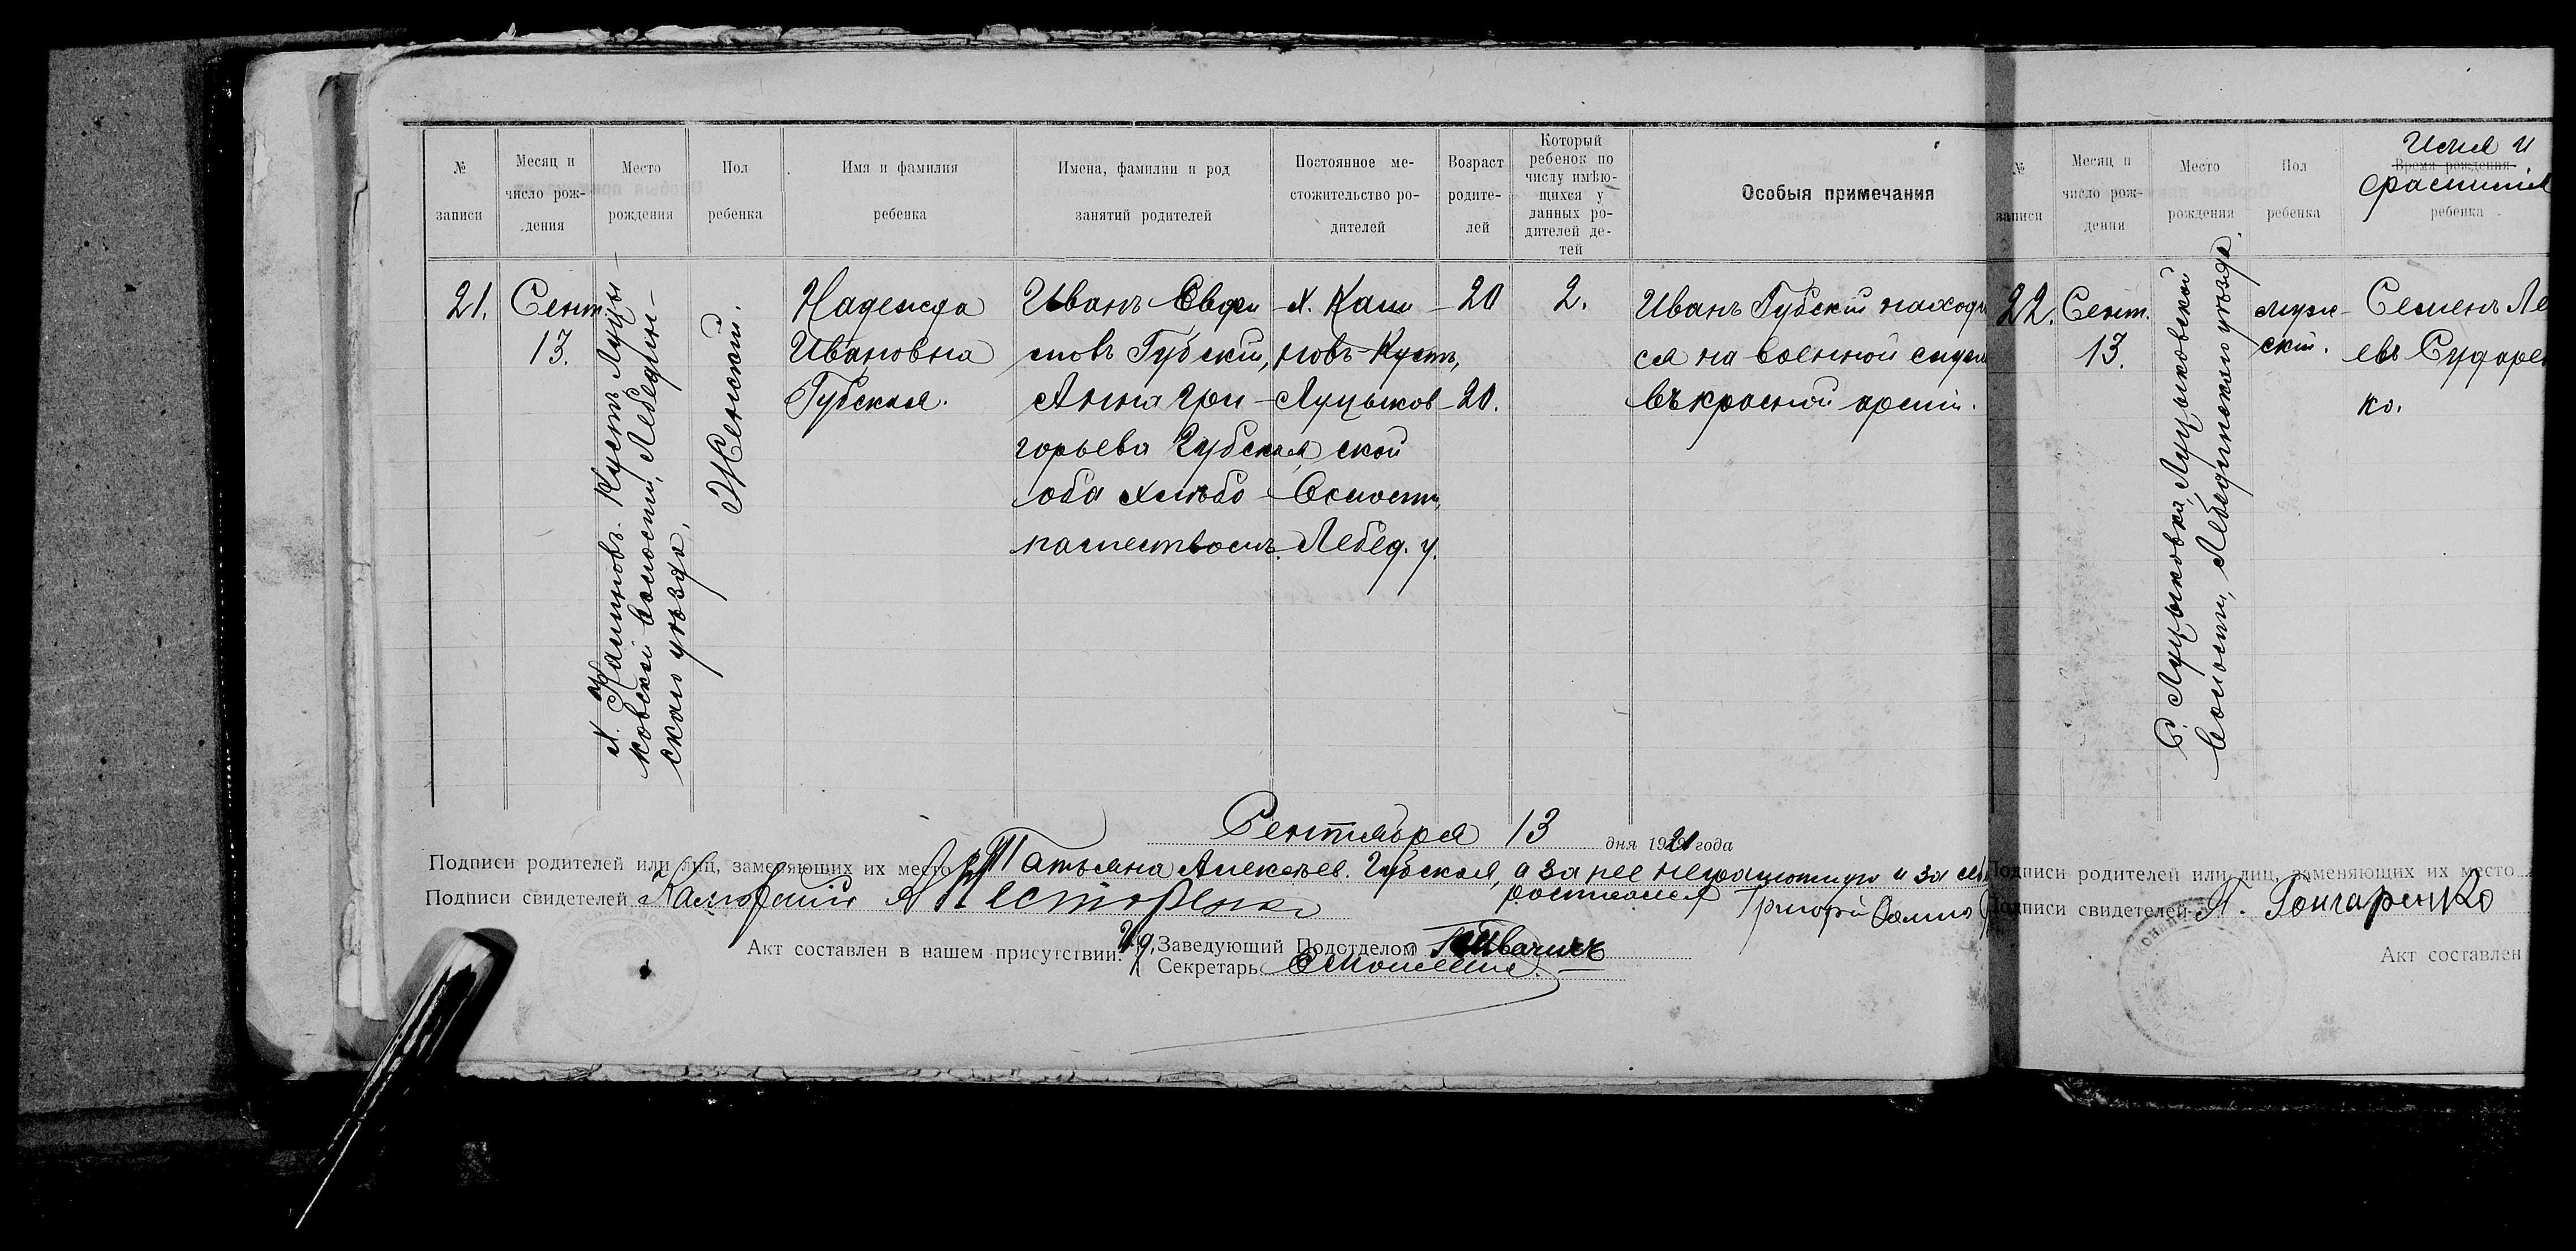 №
записи
Месяц и
число рож-
дения
Место
рождения
Пол
ребенка
Имя и фамилия
ребенка
Имена, фамилии и род
занятий родителей
Постоянное ме-
стожительство ро-
дителей
Возраст
родите-
лей
Который
ребенок по
числу имѣю-
щихся у
данных ро-
дителей де-
тей
Особыя примечания
21.
Сент.
13.
х. Каминовъ-Кустъ Луцы-
ковской волости, Лебедин-
скаго уѣзда.
Женский.
Надежда
Ивановна
Губская.
Иванъ Евфи
мовъ Губский,
Анна Гри-
горьева Губская
оба хлѣбо-
пашествомъ.
х. Ками-
новъ-Кустъ,
Луцыков-
ской
Волости,
Лебед. у.
20
20.
2.
Иванъ Губский находи
ся на военной служ
въ красной арміи.
Сентября 13 дня 1921 года
Подписи родителей или лиц, заменяющих их место Татьяна Алексѣев. Губская, а за нее неграмотную и за себ
росписался Григорій
Подписи свидетелей
Акт составлен в нашем присутствии:
Заведующий Подотделом
Секретарь
№
записи
Месяц и
число рож-
дения
Место
рождения
Пол
ребенка
Имя и
Время рождения
фамилия
ребенка
22.
Сент.
13.
С. Луцыковка, Луцыковской
волости, Лебединскаго уѣзда.
муж-
ской.
Семенъ Ле
евъ Сударен
ко.
Подписи родителей или лиц, заменяющих их место
Подписи свидетелей П. Гончаренко
Акт составлен